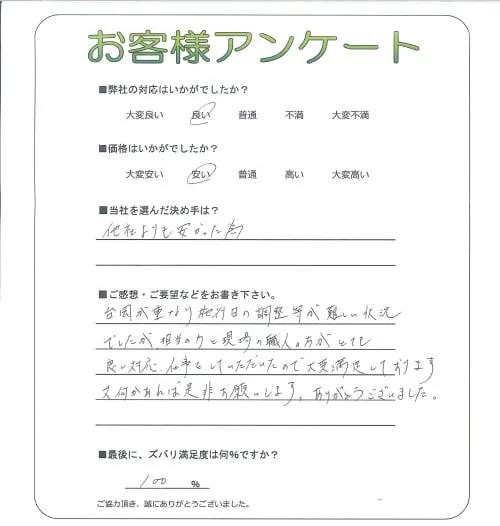 お客様アンケート
■弊社の対応はいかがでしたか？
大変良い 良い 普通 不満 大変不満
■価格はいかがでしたか？
大変安い 安い 普通 高い 大変高い
■当社を選んだ決め手は？
他社よりも安かった為
■ご感想・ご要望などをお書き下さい。
台風が重なり施行日の調整等が難しい状況
でしたが、担当の方と現場の職人の方がとても
良い対応、仕事をしていただいたので大変満足しております
又何かあれば是非お願いします。ありがとうございました。
■最後に、ズバリ満足度は何％ですか？
100 ％
ご協力頂き、誠にありがとうございました。